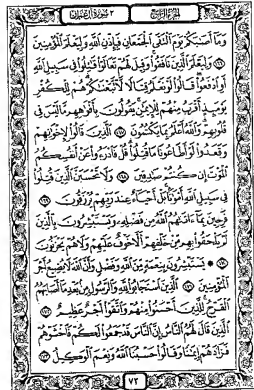 الجزء الرابع
٣ سورة آل عمران
وما أصابكم يوم التقى الجمعان فبإذن الله وليعلم المؤمنين
﴿١٦٦﴾ وليعلم الذين نافقوا وقيل لهم تعالوا قاتلوا في سبيل الله
أو ادفعوا قالوا لو نعلم قتالا لاتبعناكم هم للكفر
يومئذ أقرب منهم للإيمان يقولون بأفواههم ما ليس في
قلوبهم والله أعلم بما يكتمون ﴿١٦٧﴾ الذين قالوا لإخوانهم
وقعدوا لو أطاعونا ما قتلوا قل فادرءوا عن أنفسكم
الموت إن كنتم صادقين ﴿١٦٨﴾ ولا تحسبن الذين قتلوا
في سبيل الله أمواتا بل أحياء عند ربهم يرزقون ﴿١٦٩﴾
فرحين بما ءاتاهم الله من فضله ويستبشرون بالذين
لم يلحقوا بهم من خلفهم ألا خوف عليهم ولا هم يحزنون
﴿١٧٠﴾ يستبشرون بنعمة من الله وفضل وأن الله لا يضيع أجر
المؤمنين ﴿١٧١﴾ الذين استجابوا لله والرسول من بعد ما أصابهم
القرح للذين أحسنوا منهم واتقوا أجر عظيم ﴿١٧٢﴾
الذين قال لهم الناس إن الناس قد جمعوا لكم فاخشوهم
فزادهم إيمانا وقالوا حسبنا الله ونعم الوكيل ﴿١٧٣﴾
٧٢